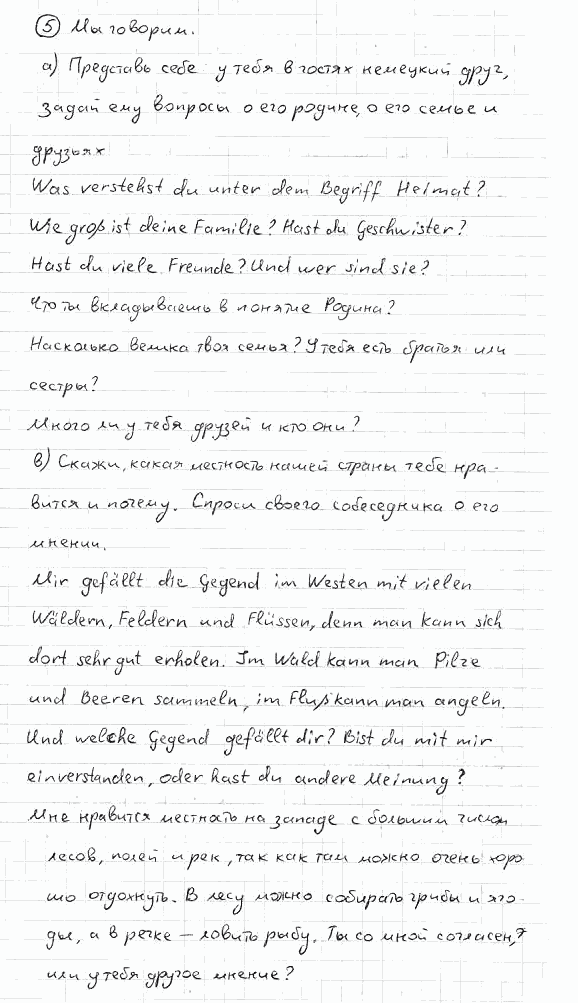 ⑤ Мы говорим.
а) Представь себе у тебя в гостях немецкий друг,
задай ему вопросы о его родине, о его семье и
друзьях
Was verstehst du unter dem Begriff Heimat?
Wie groß ist deine Familie? Hast du Geschwister?
Hast du viele Freunde? Und wer sind sie?
Что ты вкладываешь в понятие Родина?
Насколько велика твоя семья? У тебя есть братья или
сестры?
Много ли у тебя друзей и кто они?
в) Скажи, какая местность нашей страны тебе нра-
вится и почему. Спроси своего собеседника о его
мнении.
Mir gefällt die Gegend im Westen mit vielen
Wäldern, Feldern und Flüssen, denn man kann sich
dort sehr gut erholen. Im Wald kann man Pilze
und Beeren sammeln, im Fluß kann man angeln.
Und welche Gegend gefällt dir? Bist du mit mir
einverstanden, oder hast du andere Meinung?
Мне нравится местность на западе с большим числом
лесов, полей и рек, так как там можно очень хоро
шо отдохнуть. В лесу можно собирать грибы и яго-
ды, а в речке – ловить рыбу. Ты со мной согласен,
или у тебя другое мнение?